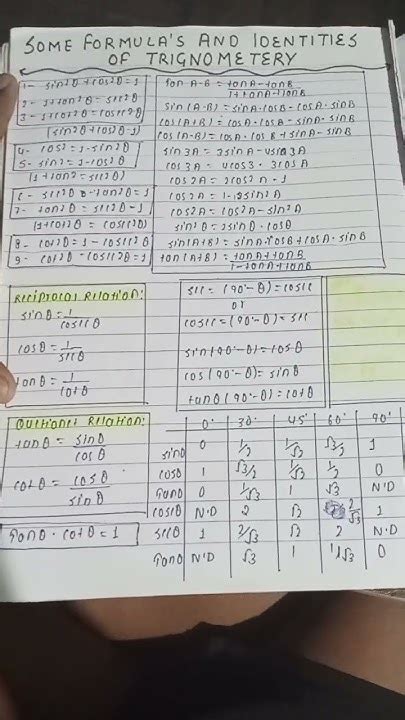 SOME FORMULA'S AND IDENTITIES
OF TRIGNOMETERY
1- sin²θ + cos²θ = 1
2- 1 + tan²θ = sec²θ
3- 1 + cot²θ = cosec²θ
(sin²θ + cos²θ = 1)
4- cos² = 1 - sin²θ
5- sin² = 1 - cos²θ
(1 + tan² = sec²θ)
6- sec²θ - tan²θ = 1
7- tan²θ = sec²θ - 1
(1 + cot²θ = cosec²θ)
8- cot²θ = 1 - cosec²θ
9- cot²θ - cosec²θ = 1
tan A-B = tanA - tanB / 1 + tanA·tanB
sin(A-B) = sinA·cosB - cosA·sinB
cos(A+B) = cosA·cosB - sinA·sinB
cos(A-B) = cosA·cosB + sinA·sinB
sin3A = 3sinA - 4sin3A
cos3A = 4cos3 - 3cosA
cos2A = 2cos²A - 1
cos2A = 1 - 2sin²A
cos2A = cos²A - sin²A
sin2θ = 2sinθ·cosθ
sin(A+B) = sinA·cosB + cosA·sinB
tan(A+B) = tanA + tanB / 1 - tanA·tanB
Reciprocal Relation:
sinθ = 1 / cosecθ
cosθ = 1 / secθ
tanθ = 1 / cotθ
sec = (90°-θ) = cosec
or
cosec = (90°-θ) = sec
sin(90°-θ) = cosθ
cos(90°-θ) = sinθ
tanθ (90°-θ) = cotθ
Quotient Relation:
tanθ = sinθ / cosθ
cotθ = cosθ / sinθ
Tanθ · cotθ = 1
0° 30° 45° 60° 90°
sinθ 0 1/2 1/√2 √3/2 1
cosθ 1 √3/2 1/√2 1/2 0
Tanθ 0 1/√3 1 √3 N·D
cosecθ N·D 2 √2 2/√3 1
secθ 1 2/√3 √2 2 N·D
Tanθ N·D √3 1 1/√3 0